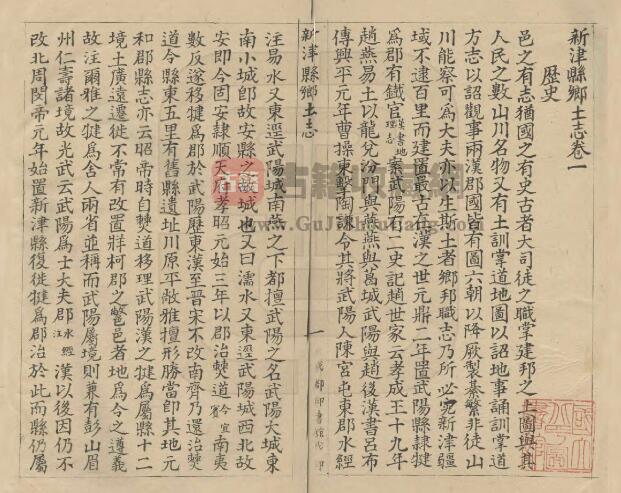 新津縣鄉土志卷一
歷史
邑之有志猶國之有史古者大司徒之職掌建邦之土圖與其
人民之數山川名物又有土訓掌道地圖以詔地事誦訓掌道
方志以詔觀事兩漢郡國皆有圖六朝以降厥製綦繁非徒山
川能察可爲大夫亦生斯土者鄉邦職志乃所必究新津疆
域不逮百里而建置最古有漢之世元鼎二年置武陽縣隸犍
爲郡有鐵官漢書地理志案武陽有二史記趙世家云孝成王十九年
趙燕易土以龍兌汾門與燕燕與葛城武陽與趙後漢書呂布
傳興平元年曹操東擊陶謙令其將武陽人陳宮屯東郡水經
新津縣鄉土志
一
注易水又東逕武陽城南蓋之下都擅武陽之名武陽大城東
南小城卽故安縣之故城也又曰濡水又東逕武陽城西北故
安即今固安隸順天府孝昭元始三年以郡治僰道今宜賓南夷
數反遂移犍爲郡於武陽歷東漢至晉宋不改南齊乃還治僰
道今縣東五里有舊縣遺址川原平敞雅擅形勝當卽其地元
和郡縣志亦云昭帝時自僰道移理武陽漢之犍爲屬縣十二
境土廣遠遷徙不常有改置牂柯郡之鄨邑者地爲今之遵義
故注爾雅之犍爲舍人兩省並稱而武陽屬境則兼有彭山眉
州仁壽諸境故光武云武陽爲士大夫郡水經注漢以後因仍不
改北周閔帝元年始置新津縣復徙犍爲郡治於此而縣仍屬
古籍收藏網
www.GuJiShouCang.com